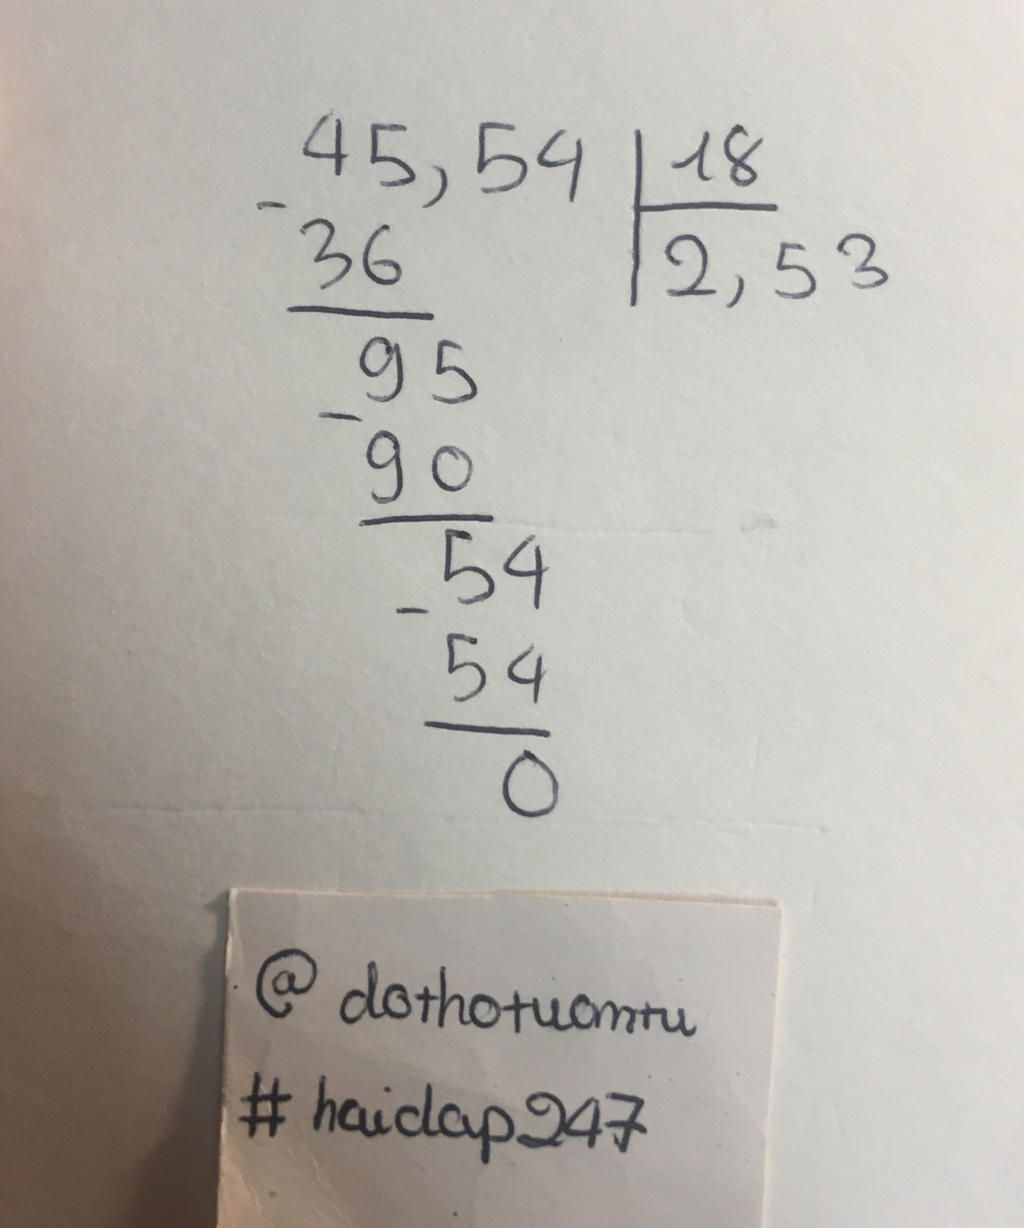 45,54 | 18
- 36 | 2,53
95
- 90
54
- 54
0
@ dothotuantu
# haidap247